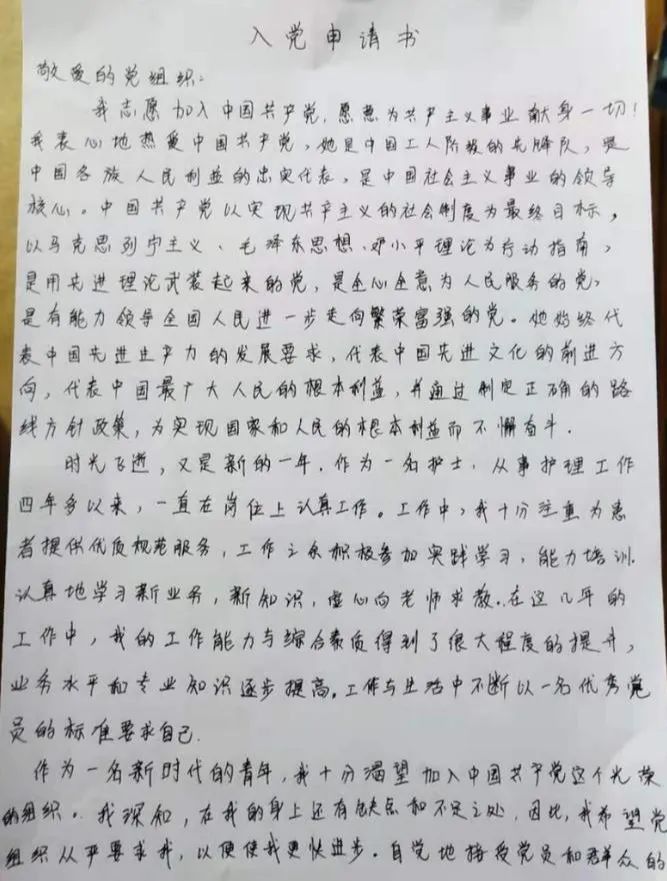 入党申请书
敬爱的党组织:
我志愿加入中国共产党,愿意为共产主义事业献身一切!
我衷心地热爱中国共产党,她是中国工人阶级的先锋队,是
中国各族人民利益的忠实代表,是中国社会主义事业的领导
核心。中国共产党以实现共产主义的社会制度为最终目标,
以马克思列宁主义、毛泽东思想、邓小平理论为行动指南,
是用先进理论武装起来的党,是全心全意为人民服务的党,
是有能力领导全国人民进一步走向繁荣富强的党。她始终代
表中国先进生产力的发展要求,代表中国先进文化的前进方
向,代表中国最广大人民的根本利益,并通过制定正确的路
线方针政策,为实现国家和人民的根本利益而不懈奋斗.
时光飞逝,又是新的一年.作为一名护士,从事护理工作
四年多以来,一直在岗位上认真工作。工作中,我十分注重为患
者提供优质规范服务,工作之余积极参加实践学习,能力培训.
认真地学习新业务,新知识,虚心向老师求教.在这几年的
工作中,我的工作能力与综合素质得到了很大程度的提升,
业务水平和专业知识逐步提高.工作与生活中不断以一名优秀党
员的标准要求自己.
作为一名新时代的青年,我十分渴望加入中国共产党这个光荣
的组织.我深知,在我的身上还有缺点和不足之处,因此,我希望党
组织从严要求我,以便使我更快进步.自觉地接受党员和群众的